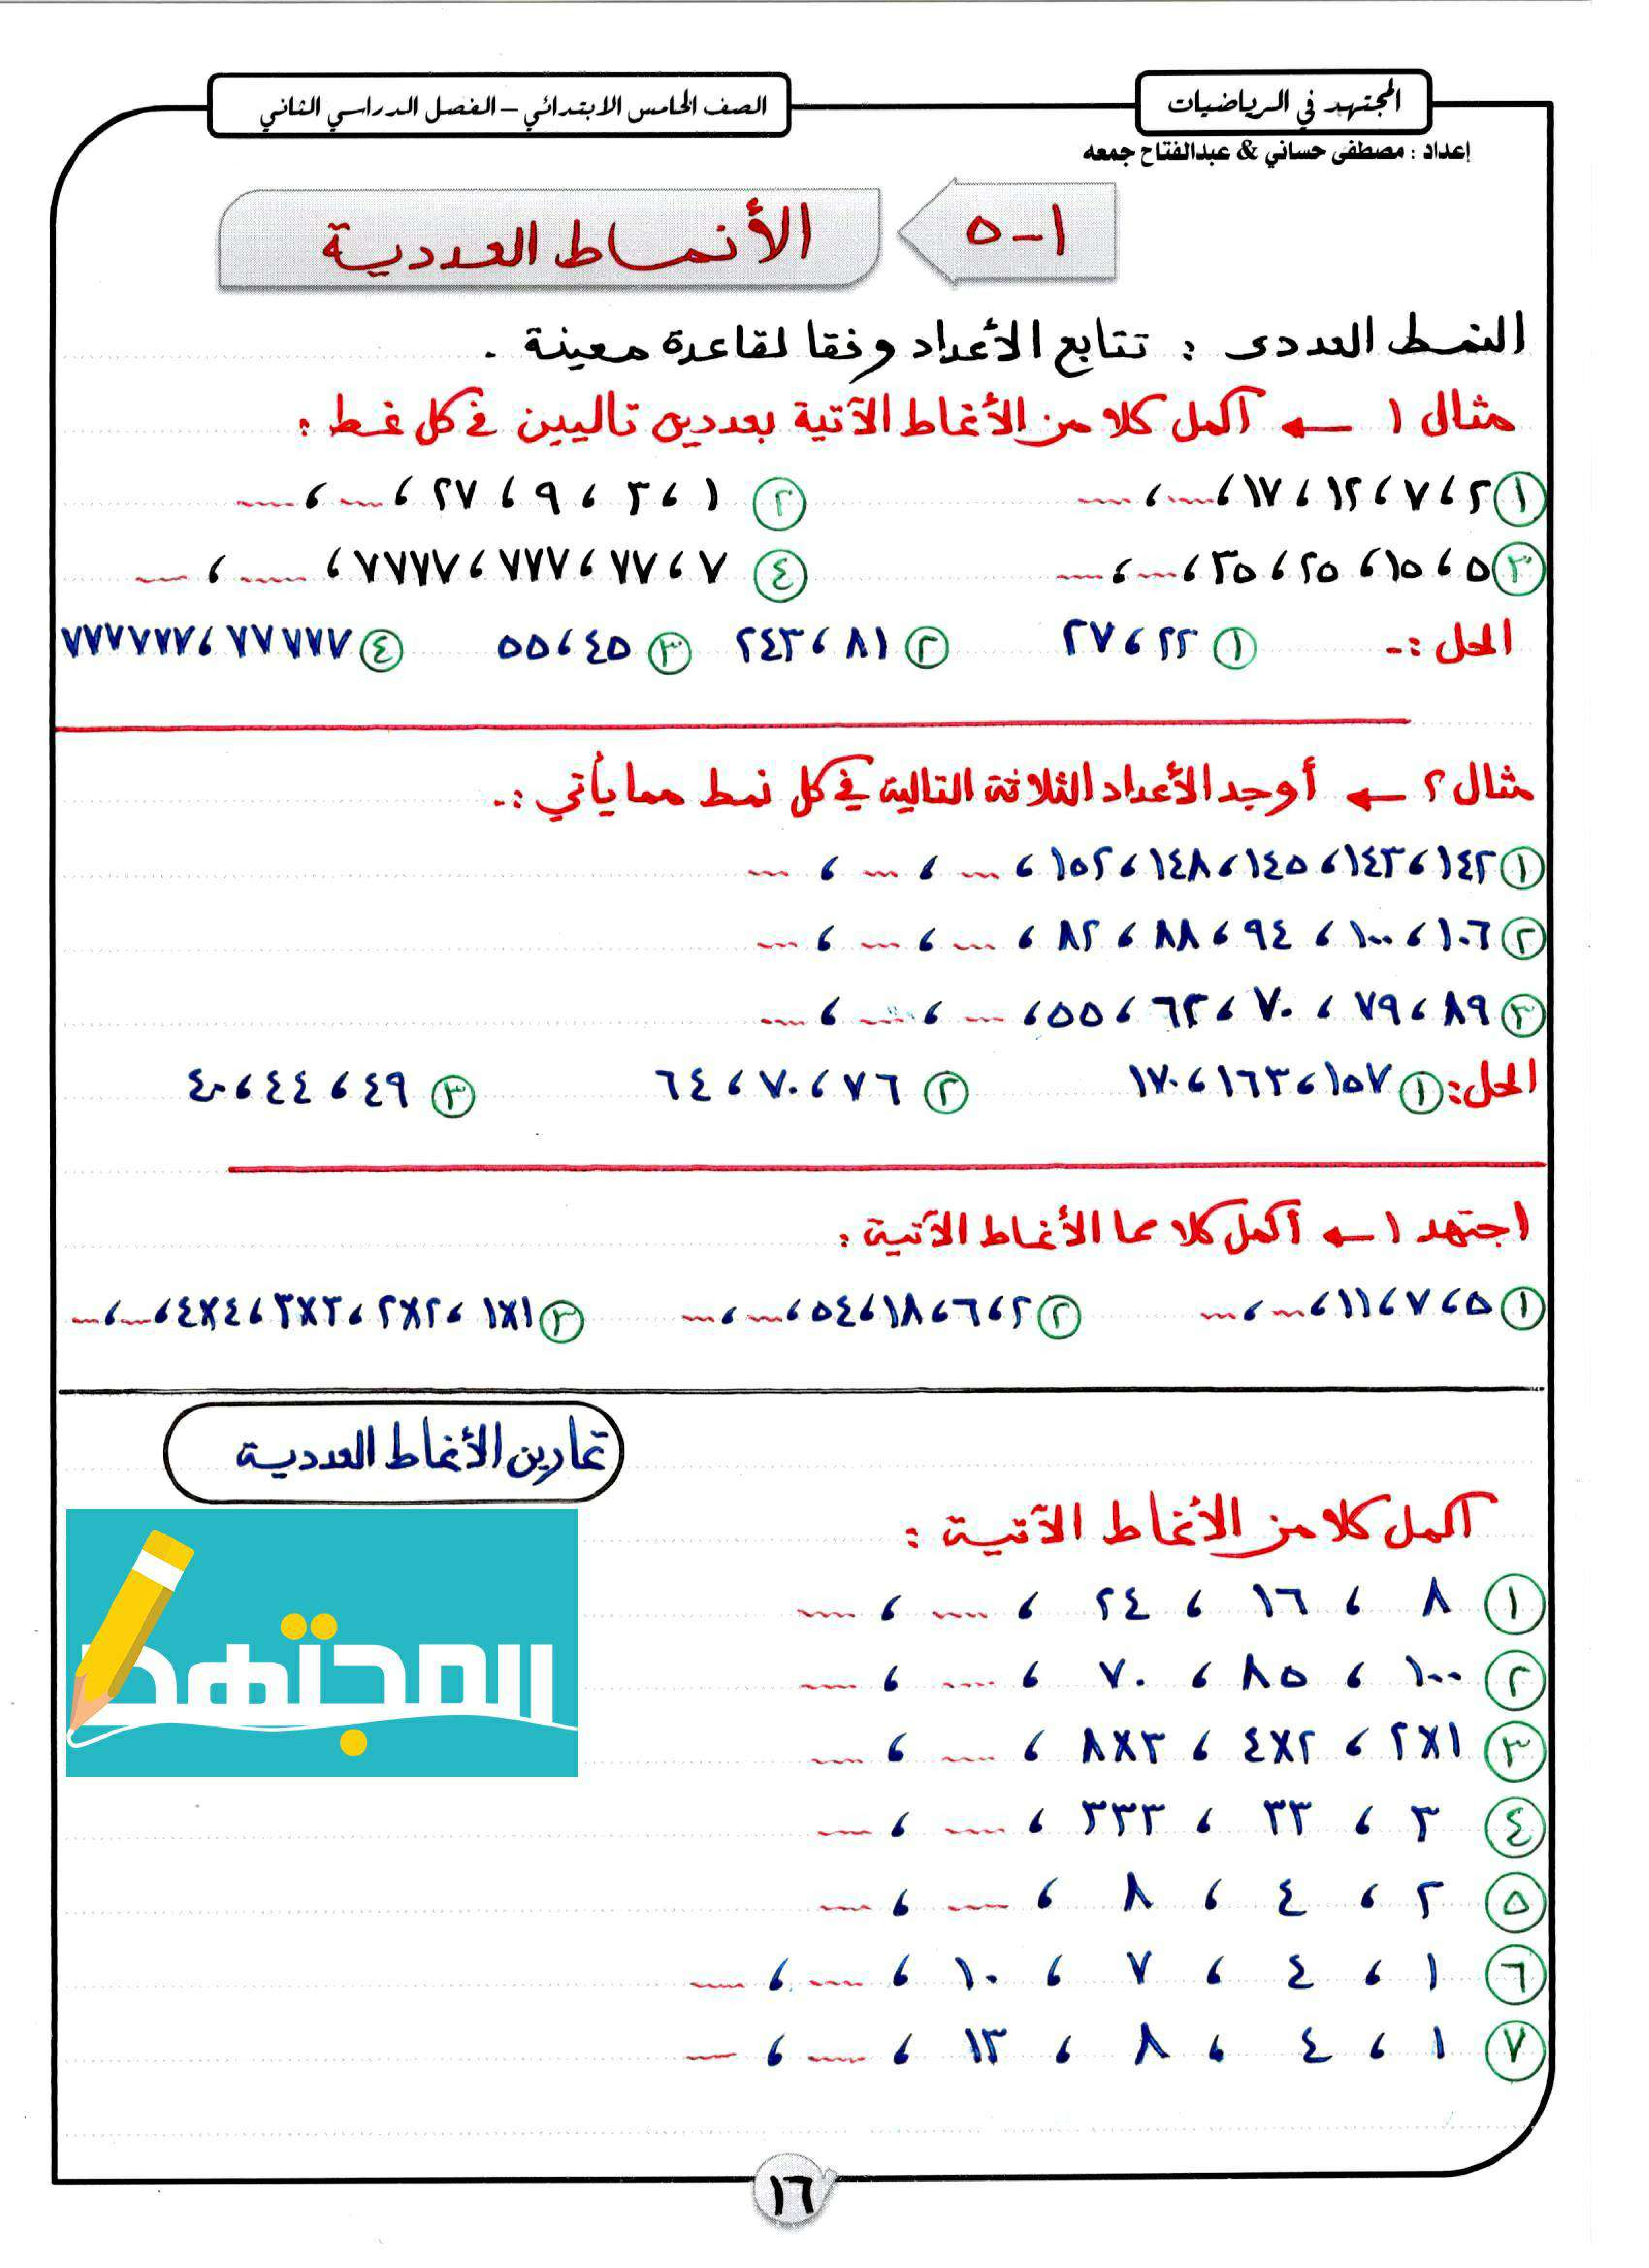 المجتهد في الرياضيات
الصف الخامس الابتدائي – الفصل الدراسي الثاني
إعداد : مصطفى حساني & عبدالفتاح جمعه
٥-١ الأنماط العددية
النمط العددى : تتابع الأعداد وفقا لقاعدة معينة .
مثال ١ ← أكمل كلا من الأنماط الآتية بعددين تاليين في كل نمط :
① ٢ ، ٧ ، ١٢ ، ١٧ ، .... ، .... ② ١ ، ٣ ، ٩ ، ٢٧ ، .... ، ....
③ ٥ ، ١٥ ، ٢٥ ، ٣٥ ، .... ، .... ④ ٧ ، ٧٧ ، ٧٧٧ ، ٧٧٧٧ ، .... ، ....
الحل :- ① ٢٢ ، ٢٧ ② ٨١ ، ٢٤٣ ③ ٤٥ ، ٥٥ ④ ٧٧٧٧٧ ، ٧٧٧٧٧٧
مثال ٢ ← أوجد الأعداد الثلاثة التالية في كل نمط مما يأتي :-
① ١٤٢ ، ١٤٣ ، ١٤٥ ، ١٤٨ ، ١٥٢ ، .... ، .... ، ....
② ١٠٦ ، ١٠٠ ، ٩٤ ، ٨٨ ، ٨٢ ، .... ، .... ، ....
③ ٨٩ ، ٧٩ ، ٧٠ ، ٦٢ ، ٥٥ ، .... ، .... ، ....
الحل : ① ١٥٧ ، ١٦٣ ، ١٧٠ ② ٧٦ ، ٧٠ ، ٦٤ ③ ٤٩ ، ٤٤ ، ٤٠
اجتهد ١ ← أكمل كلا مما الأنماط الآتية :
① ٥ ، ٧ ، ١١ ، .... ، .... ② ٢ ، ٦ ، ١٨ ، ٥٤ ، .... ، .... ③ ١×١ ، ٢×٢ ، ٣×٣ ، ٤×٤ ، .... ، ....
تمارين الأنماط العددية
أكمل كلا من الأنماط الآتية :
① ٨ ، ١٦ ، ٢٤ ، .... ، ....
② ١٠٠ ، ٨٥ ، ٧٠ ، .... ، ....
③ ٢×١ ، ٤×٢ ، ٨×٣ ، .... ، ....
④ ٣ ، ٣٣ ، ٣٣٣ ، .... ، ....
⑤ ٢ ، ٤ ، ٨ ، .... ، ....
⑥ ١ ، ٤ ، ٧ ، ١٠ ، .... ، ....
⑦ ١ ، ٤ ، ٨ ، ١٣ ، .... ، ....
المجتهد
١٦